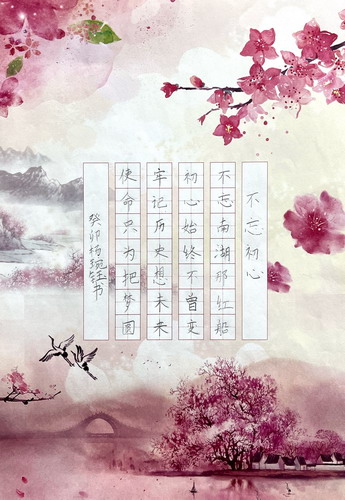 不忘初心
不忘南湖那红船
初心始终不曾变
牢记历史想未来
使命只为把梦圆
癸卯杨珮钰书